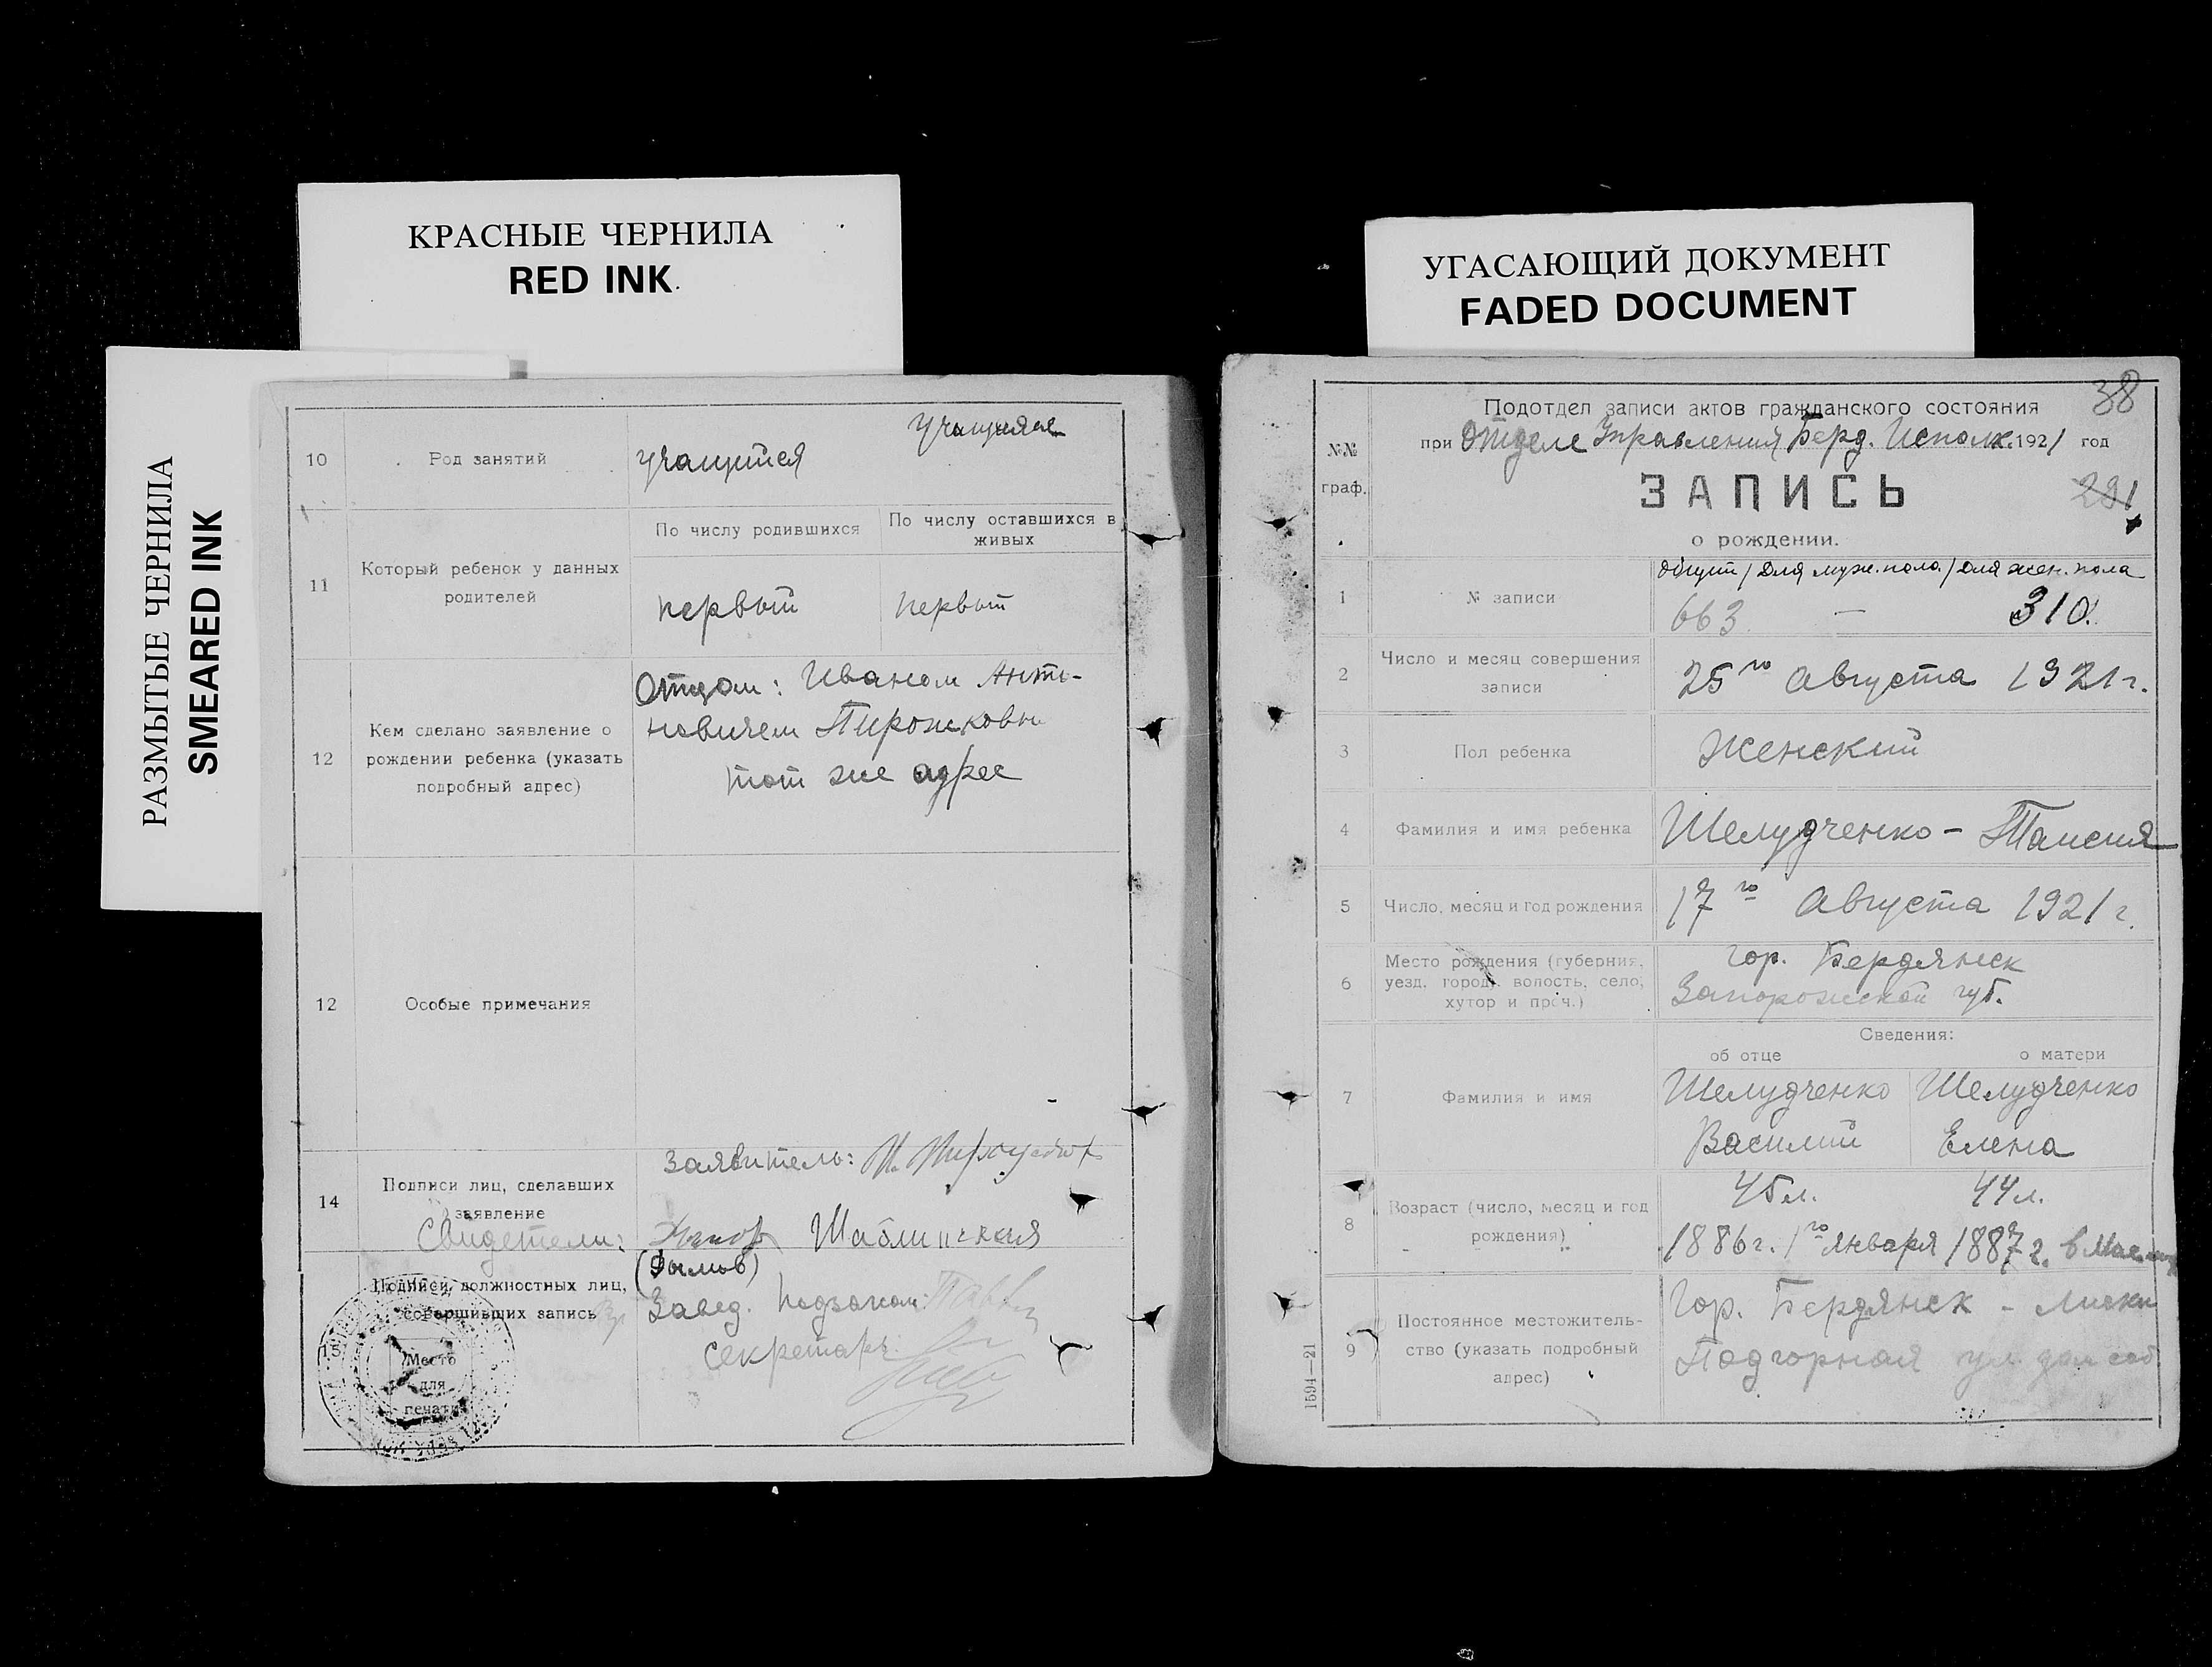 КРАСНЫЕ ЧЕРНИЛА
RED INK
РАЗМЫТЫЕ ЧЕРНИЛА
SMEARED INK
10
Род занятий
учащийся
учащаяся
11
Который ребенок у данных
родителей
По числу родившихся
По числу оставшихся в
живых
первый
первый
12
Кем сделано заявление о
рождении ребенка (указать
подробный адрес)
Отцом: Иваном Анто-
новичем Пирожковым
тот же адрес
12
Особые примечания
14
Подписи лиц, сделавших
заявление
Заявитель:
Свидетели:
Шаблинская
Подписи должностных лиц,
совершивших запись
15
Место
для
печати
Завед. Подзагсом:
Секретарь
УГАСАЮЩИЙ ДОКУМЕНТ
FADED DOCUMENT
38
Подотдел записи актов гражданского состояния
при Отделе Управления Берд. Исполк. 1921 год
№№
граф.
ЗАПИСЬ
291
о рождении.
1
№ записи
общий / для муж. пола / для жен. пола
663 — 310.
2
Число и месяц совершения
записи
25го Августа 1921 г.
3
Пол ребенка
Женский
4
Фамилия и имя ребенка
Шелудченко - Таисия
5
Число, месяц и год рождения
17го Августа 1921 г.
6
Место рождения (губерния,
уезд, город, волость, село,
хутор и проч.)
гор. Бердянск
Запорожской губ.
Сведения:
об отце
о матери
7
Фамилия и имя
Шелудченко
Василий
Шелудченко
Елена
8
Возраст (число, месяц и год
рождения)
45 л.
44 л.
1886 г. 1го января
1887 г. в Мае
9
Постоянное местожитель-
ство (указать подробный
адрес)
Гор. Бердянск - Лиски
Подгорная ул. дом соб
1594—21